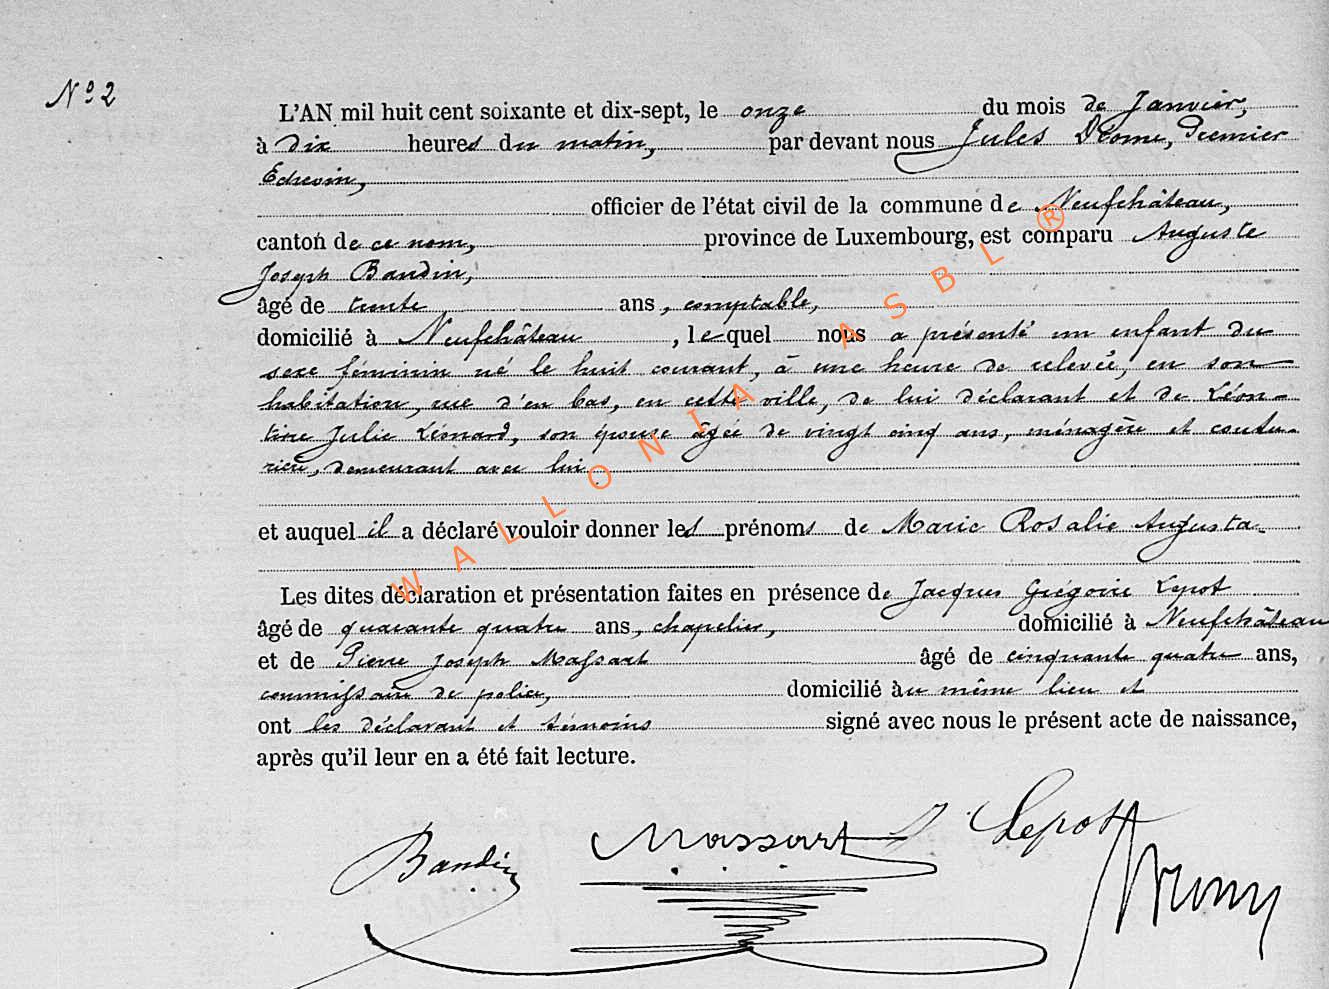 N° 2
L'AN mil huit cent soixante et dix-sept, le onze du mois de Janvier,
à dix heures du matin, par devant nous Jules Premier
Echevin,
officier de l'état civil de la commune de Neufchâteau,
canton de ce nom, province de Luxembourg, est comparu Auguste
Joseph Baudin,
âgé de trente ans, comptable,
domicilié à Neufchâteau, lequel nous a présenté un enfant du
sexe féminin né le huit courant, à une heure de relevée, en son
habitation, rue d'en bas, en cette ville, de lui déclarant et de Léon-
tine Julie Léonard, son épouse âgée de vingt cinq ans, ménagère et coutu-
rière, demeurant avec lui
et auquel il a déclaré vouloir donner les prénoms de Marie Rosalie Augusta
Les dites déclaration et présentation faites en présence de Jacques Grégoire Lepot
âgé de quarante quatre ans, chapelier, domicilié à Neufchâteau
et de Pierre Joseph Massart âgé de cinquante quatre ans,
commissaire de police, domicilié au même lieu et
ont les déclarant et témoins signé avec nous le présent acte de naissance,
après qu'il leur en a été fait lecture.
Baudin Massart J Lepot
WALLONIA ASBL ®